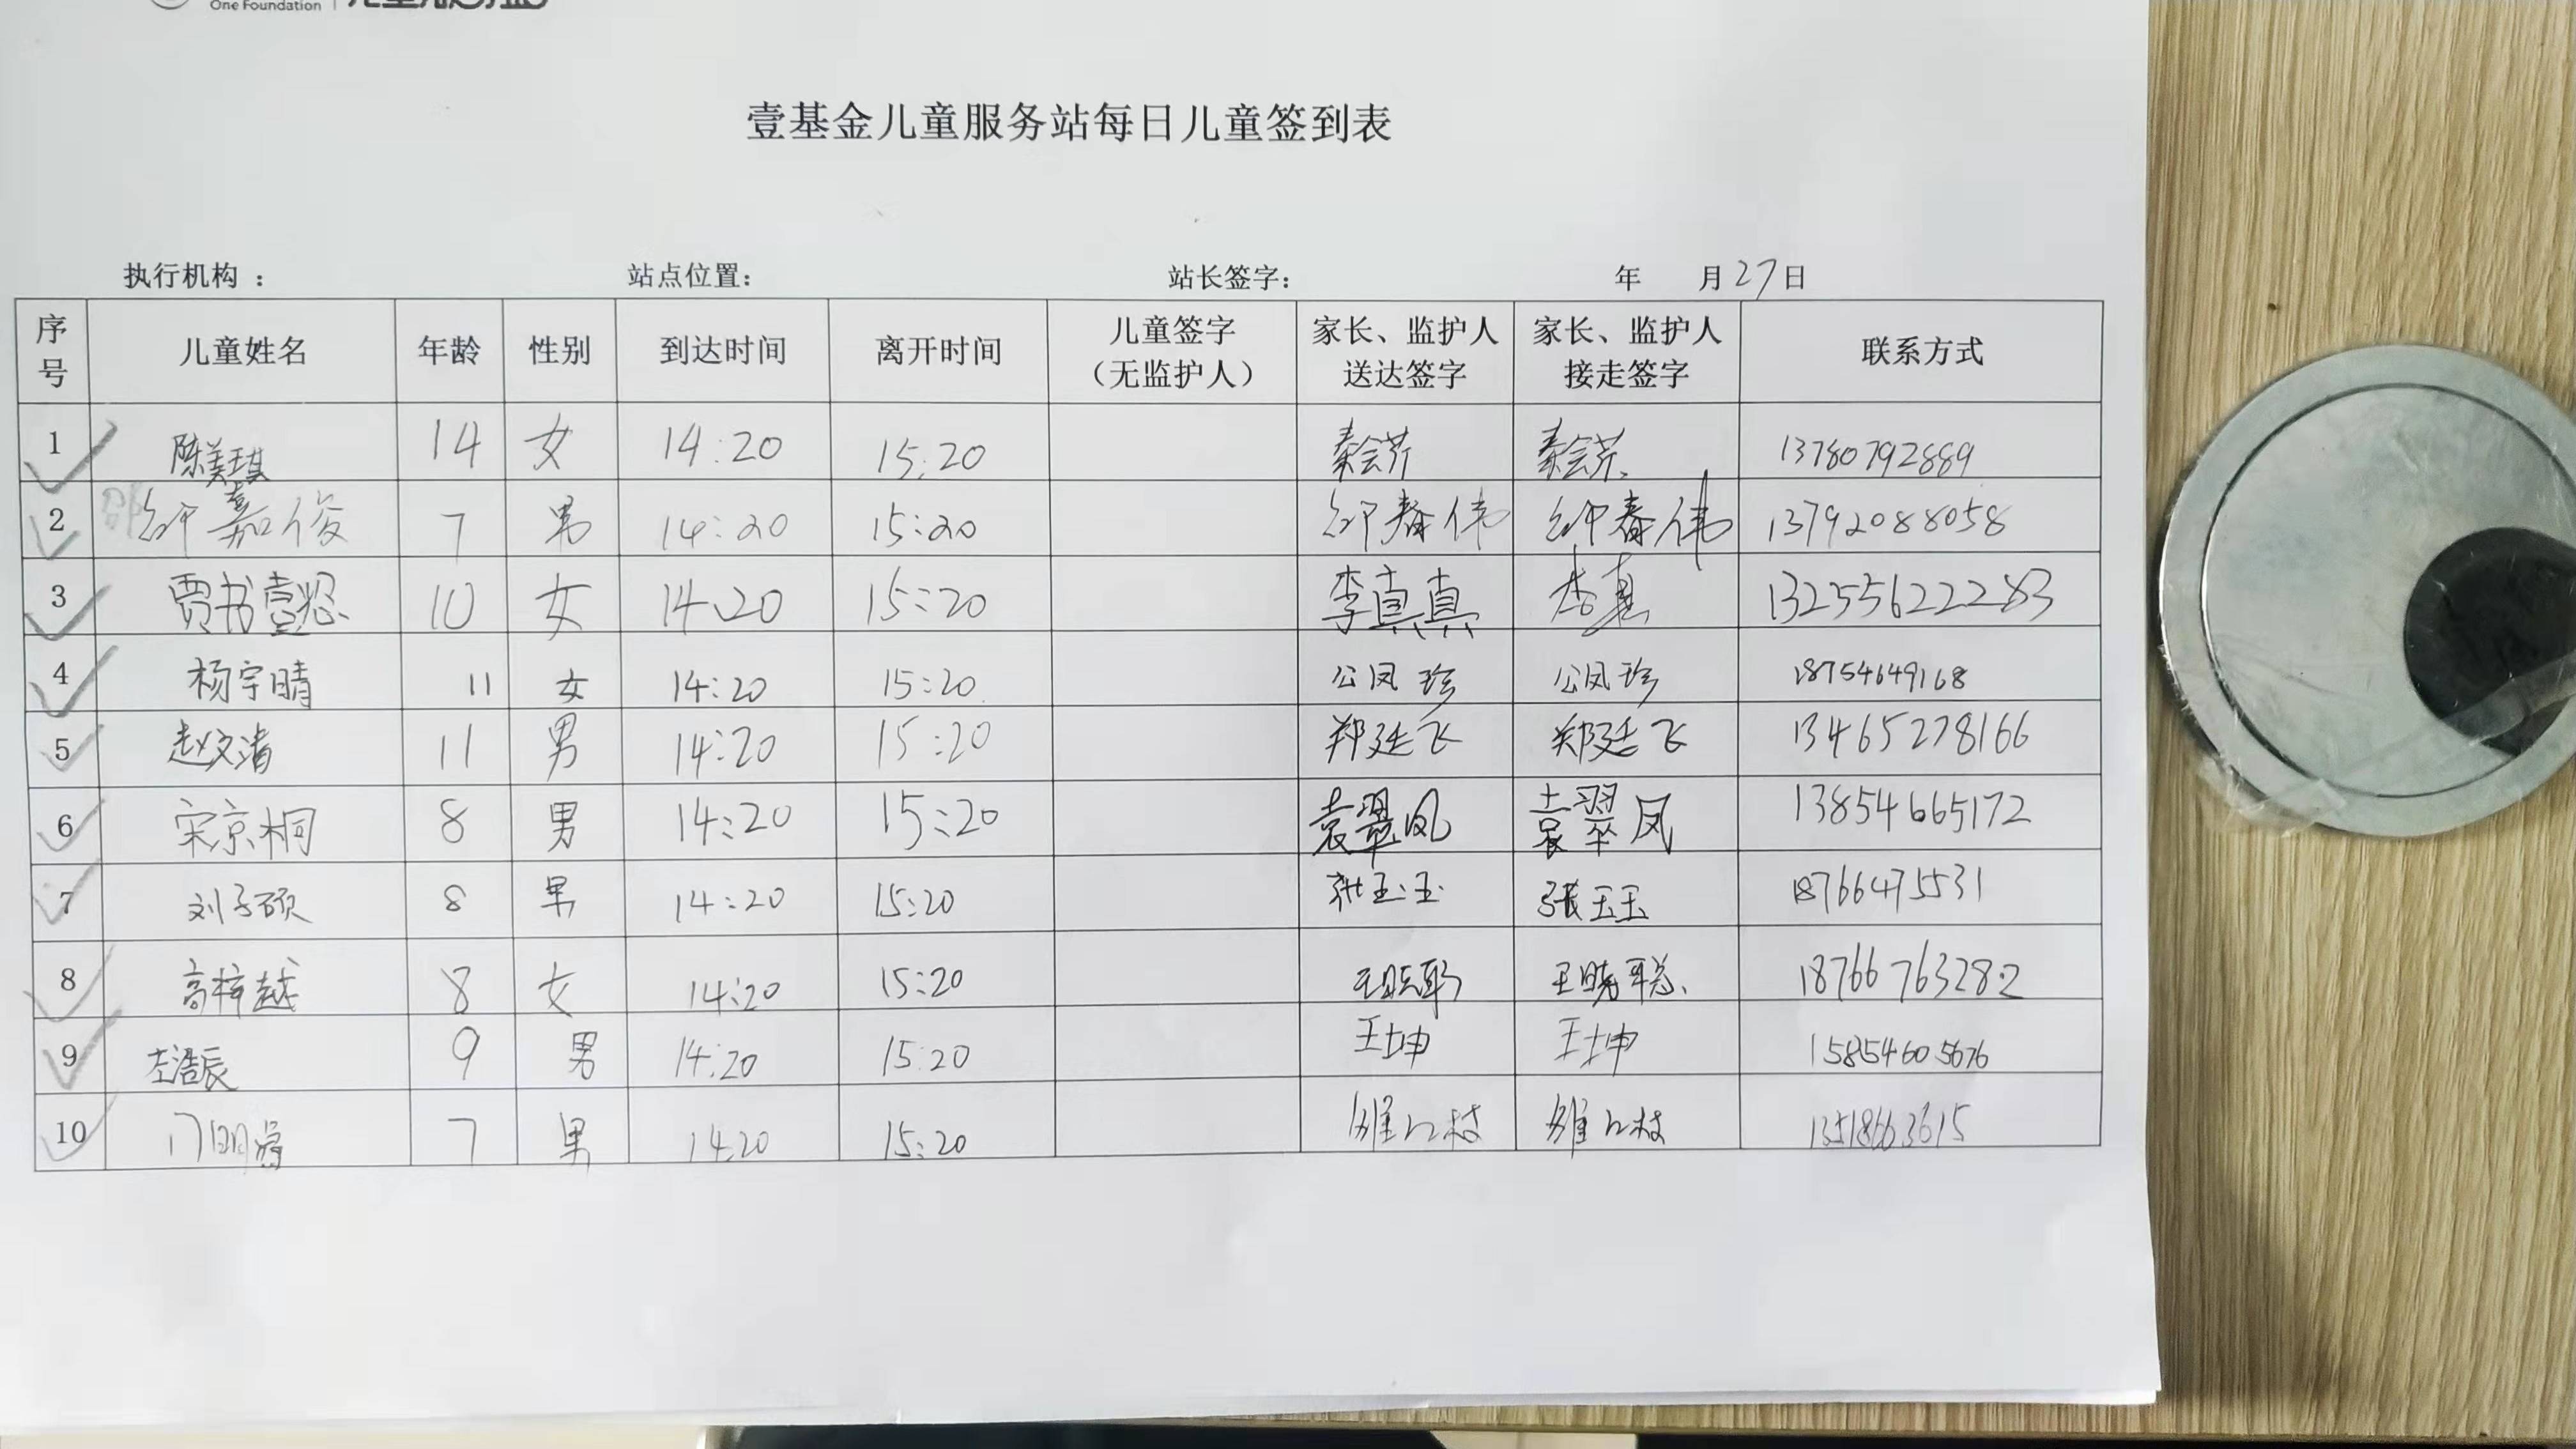 One Foundation
壹基金儿童服务站每日儿童签到表
执行机构 : 站点位置: 站长签字: 年 月27日
序号 儿童姓名 年龄 性别 到达时间 离开时间 儿童签字（无监护人） 家长、监护人送达签字 家长、监护人接走签字 联系方式
1 陈美琪 14 女 14:20 15:20 秦会芹 秦会芹 13780792889
2 嘉俊 7 男 14:20 15:20 春伟 春伟 13792088058
3 贾书壹 10 女 14:20 15:20 李真真 李真 13255622283
4 杨宇晴 11 女 14:20 15:20 公凤珍 公凤珍 18754649168
5 赵文清 11 男 14:20 15:20 郑廷飞 郑廷飞 13465278166
6 宋京桐 8 男 14:20 15:20 袁翠凤 袁翠凤 13854665172
7 刘子硕 8 男 14:20 15:20 张玉玉 张玉玉 18766475531
8 高梓越 8 女 14:20 15:20 王晓聪 王晓聪 18766763282
9 左浩辰 9 男 14:20 15:20 王坤 王坤 15854605676
10 门明 7 男 14:20 15:20